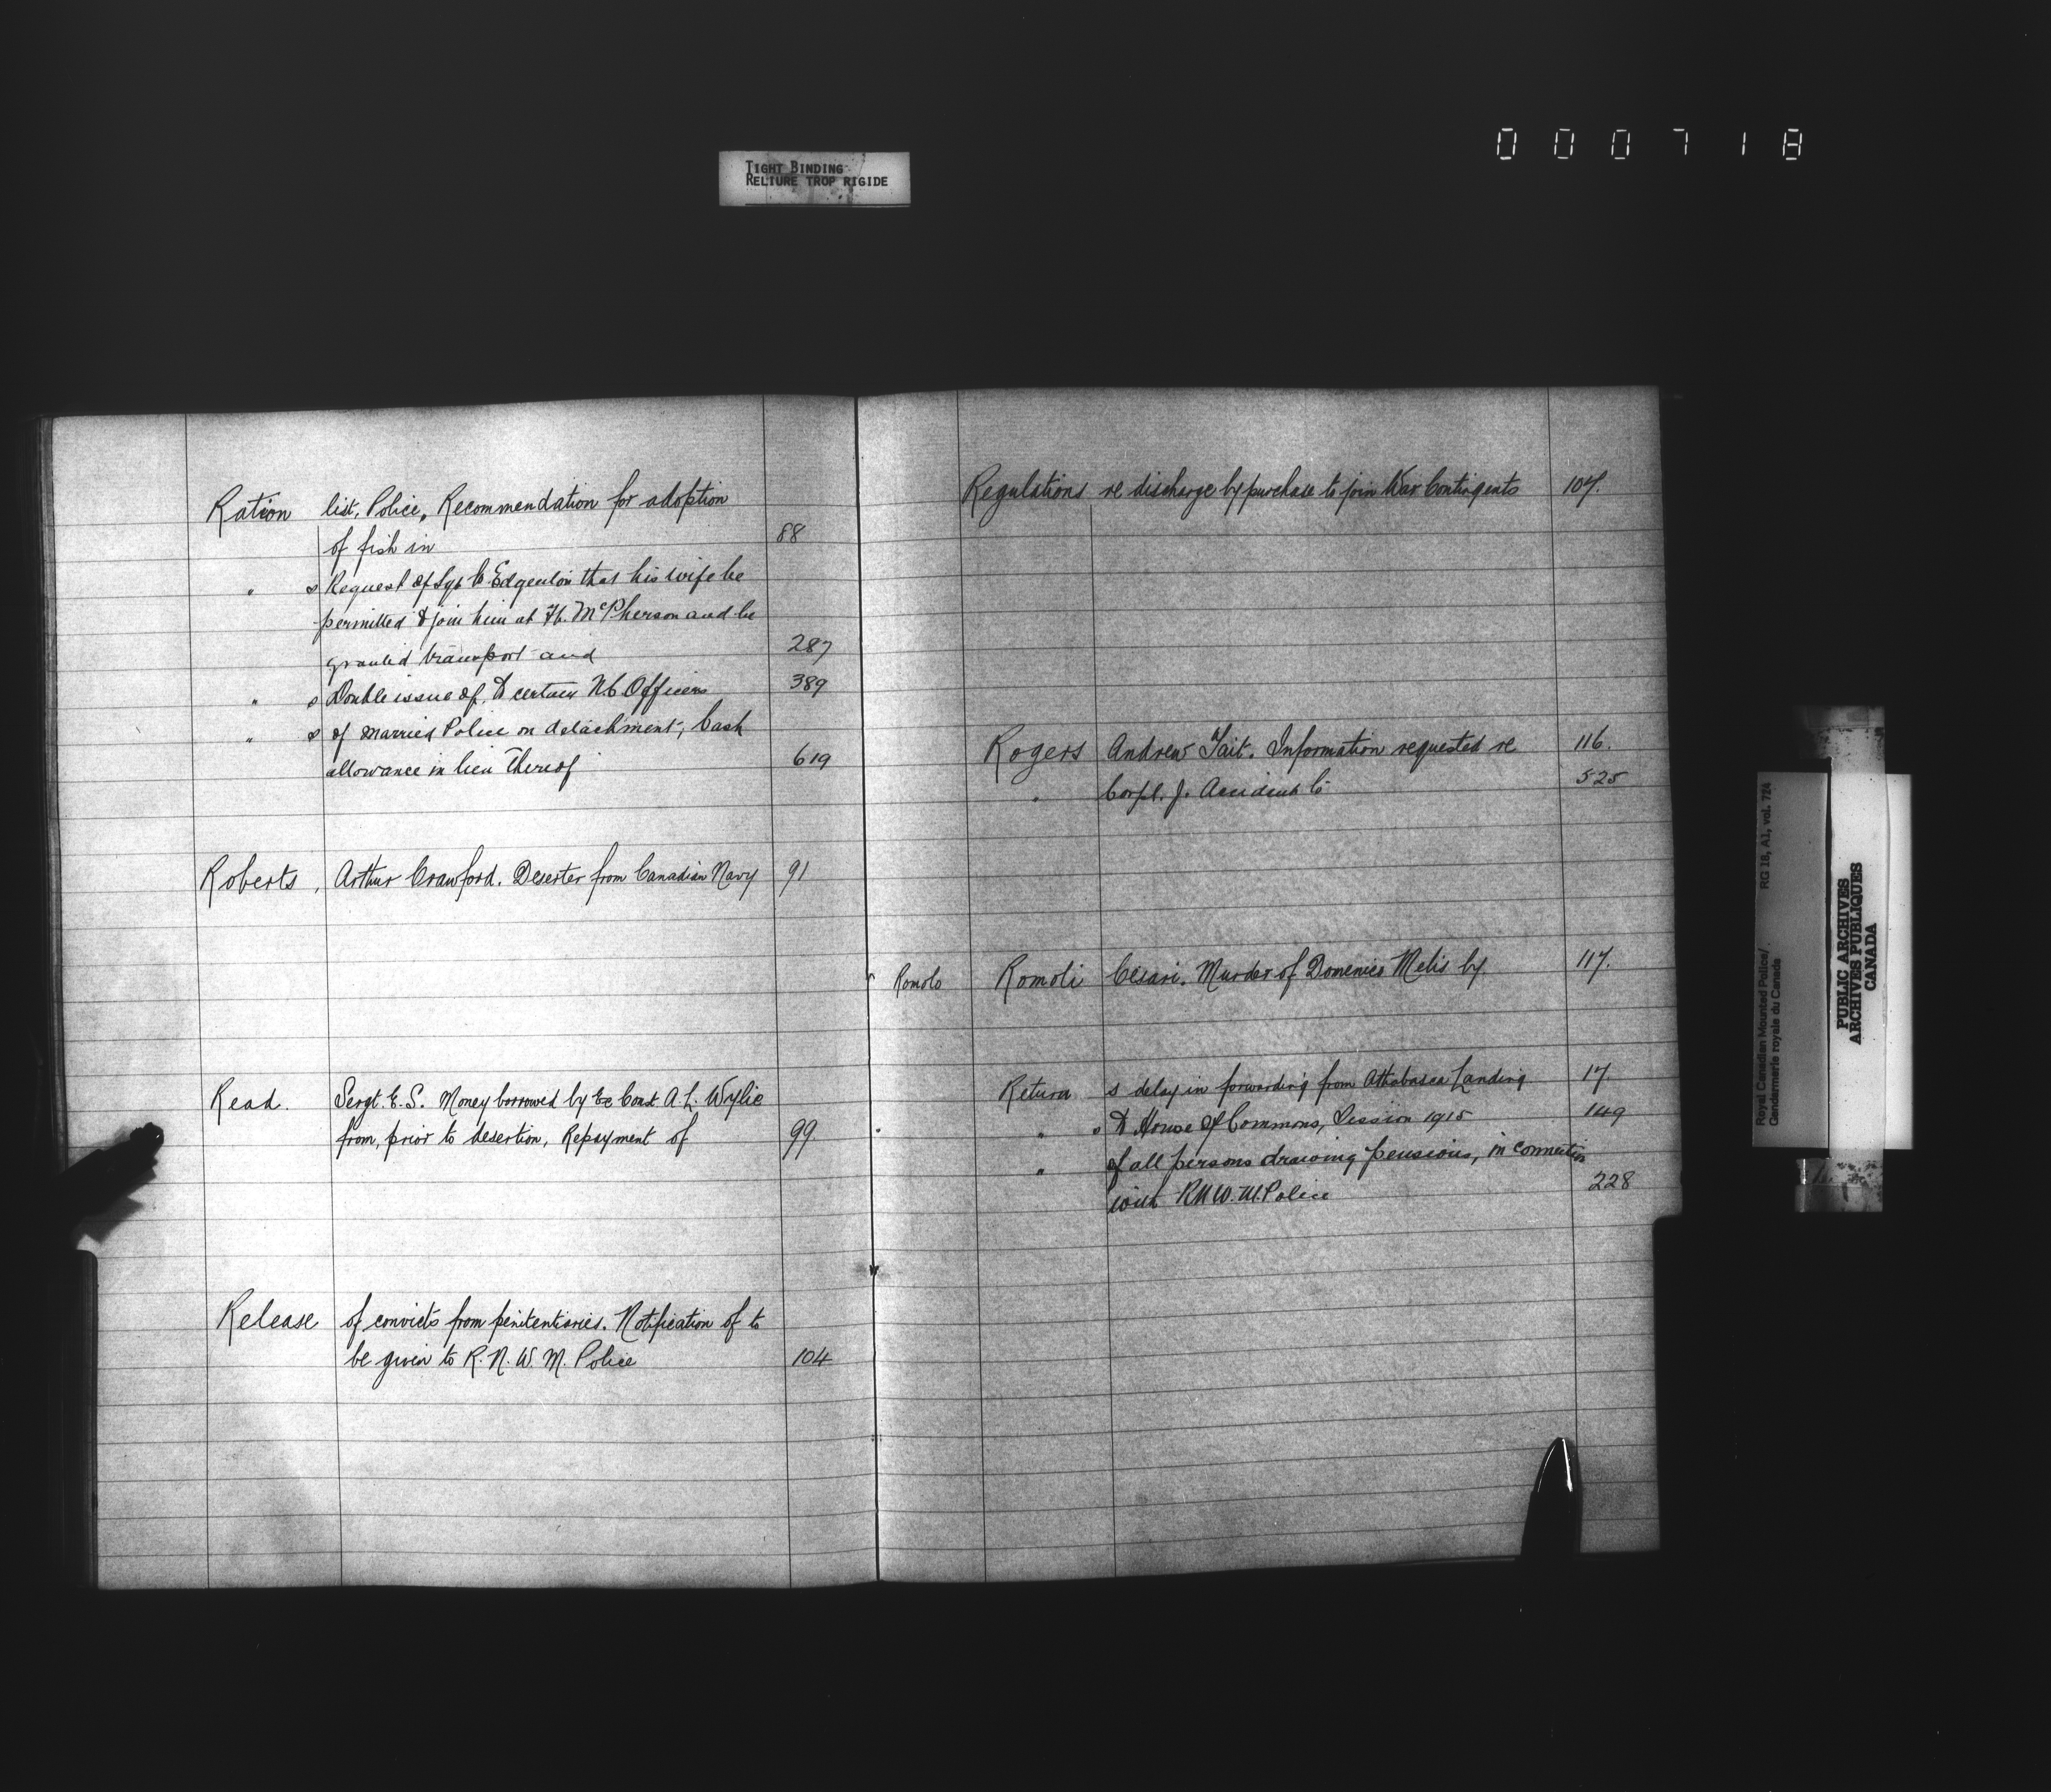 000718
TIGHT BINDING
RELIURE TROP RIGIDE
Ration list, Police, Recommendation for adoption
of fish in 88
" s Request of Sgt C. Edgenton that his wife be
permitted to join him at Ft. McPherson and be
granted transport and 287
" s Double issue of, to certain N.C. Officers 389
" s of married Police on detachment, Cash
allowance in lieu thereof 619
Roberts, Arthur Crawford. Deserter from Canadian Navy 91
Read. Sergt. E. S. Money borrowed by Ex Const A. L. Wylie
from, prior to desertion, Repayment of 99
Release of convicts from penitentiaries. Notification of to
be given to R. N. W. M. Police 104
Regulations re discharge by purchase to join War Contingents 107.
Rogers Andrew Tait. Information requested re 116.
" Corpl. J. Accident to 525
Romolo Romoli Cesari. Murder of Domenico Melis by 117.
Return s delay in forwarding from Athabasca Landing 17.
" s to House of Commons, Session 1915 149
" of all persons drawing pensions, in connection
with RNW.M.Police 228
Royal Canadian Mounted Police/ RG 18, A1, vol. 724
Gendarmerie royale du Canada
PUBLIC ARCHIVES
ARCHIVES PUBLIQUES
CANADA